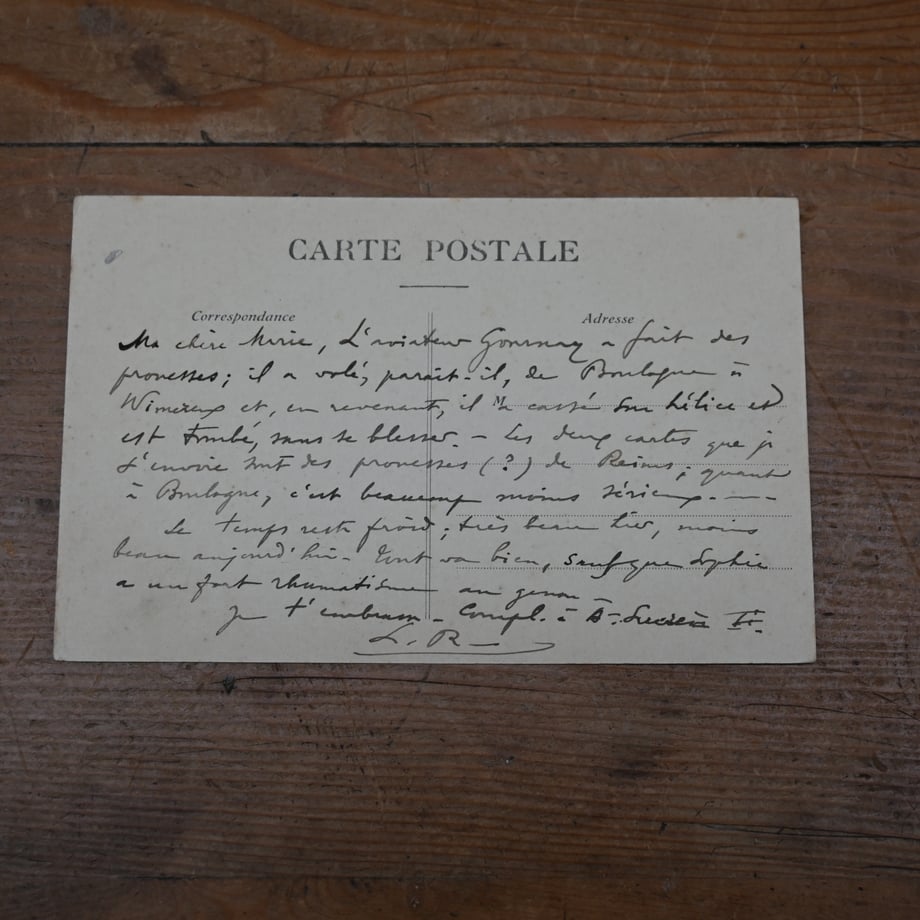 CARTE POSTALE
Correspondance
Adresse
M
Ma chère Marie, L'aviateur Gournay a fait des
prouesses; il a volé, paraît-il, de Boulogne à
Wimereux et, en revenant, il a cassé son hélice et
est tombé, sans se blesser. – Les deux cartes que je
t'envoie sont des prouesses (?) de Reims; quant
à Boulogne, c'est beaucoup moins sérieux. –––
Le temps reste froid; très beau hier, moins
beau aujourd'hui – Tout va bien, sauf que Sophie
a un fort rhumatisme au genou –
Je t'embrasse – Compl. à
L. R.